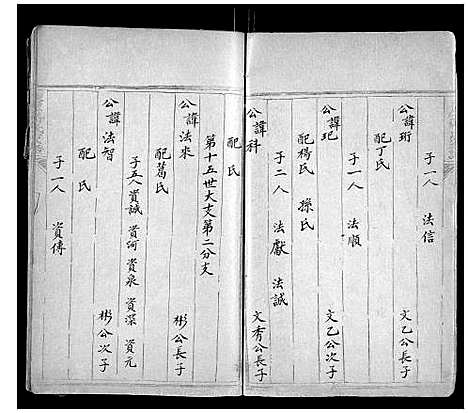 公諱珩 文乙公長子
配丁氏
子一人 法信
公諱玘 文乙公次子
子一人 法順
公諱科 文秀公長子
配楊氏 孫氏
子二人 法獻 法誠
配 氏
第十五世大支第二分支
公諱法來 彬公長子
配葛氏
子五人 資誠 資河 資泉 資深 資元
公諱法智 彬公次子
配 氏
子一人 資傳